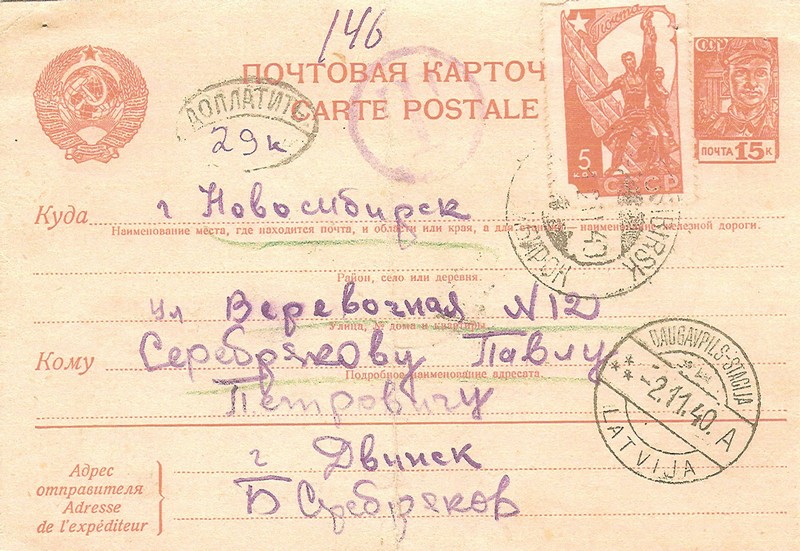 146
ПОЧТОВАЯ КАРТОЧ
CARTE POSTALE
ДОПЛАТИТЬ
29к
Почта
5
СССР
СССР
ПОЧТА 15 К
Куда г Новосибирск
Наименование места, где находится почта, и области или края, а для станции — наименование железной дороги.
Район, село или деревня.
ул Веревочная N 12
Улица, № дома и квартиры
Кому Серебрякову Павлу
Подробное наименование адресата.
Петровичу
DAUGAVPILS-STACIJA
-2.11.40. A
LATVIJA
Адрес
отправителя
Adresse
de l'expéditeur
г Двинск
Б Серебряков